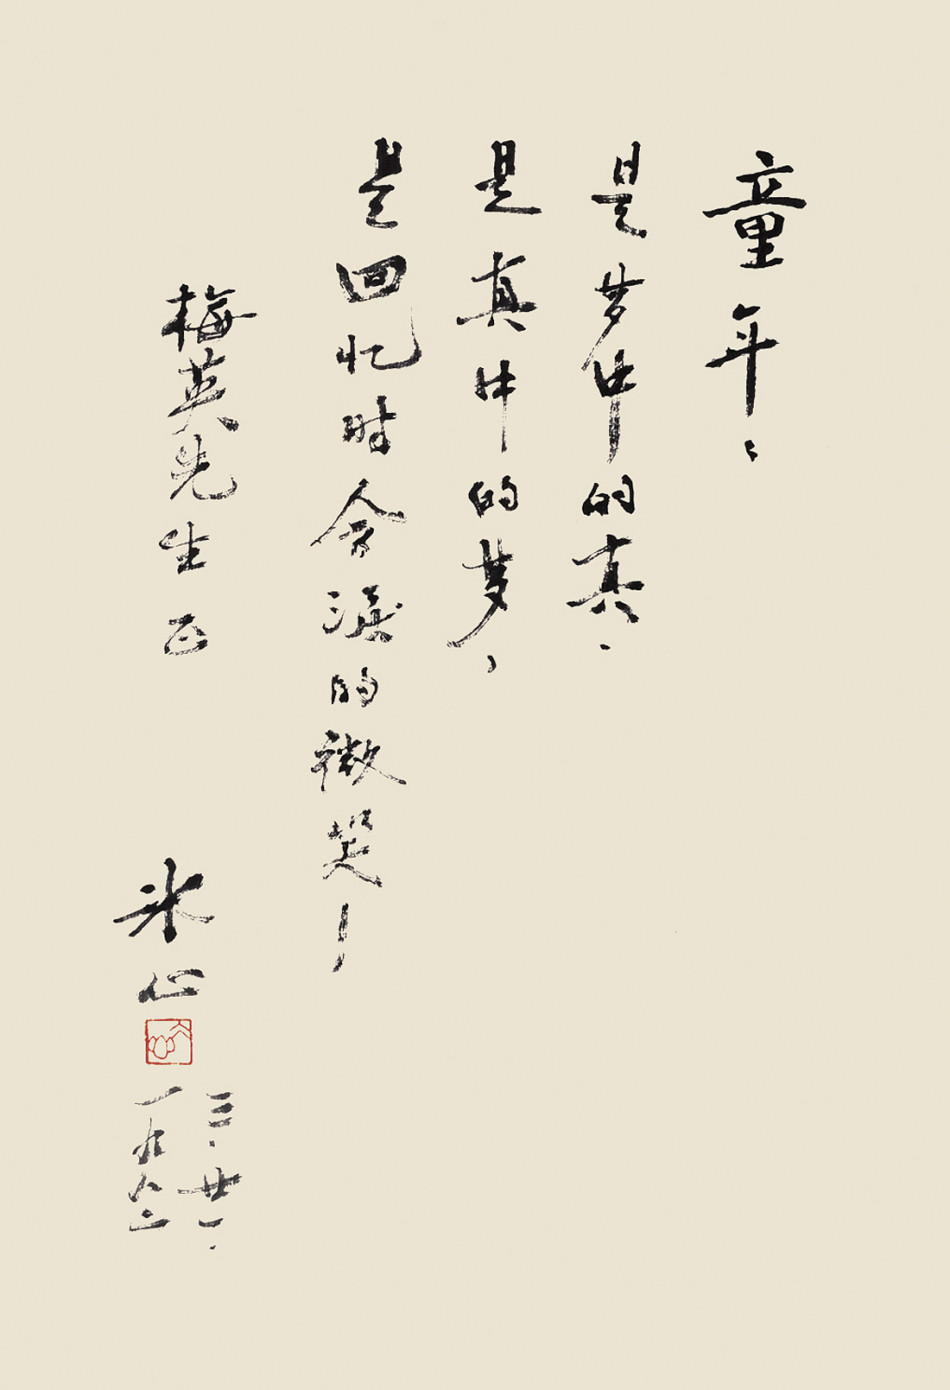 童年、
是梦中的真、
是真中的梦，
是回忆时含泪的微笑！
梅英先生正
冰心
三、廿一、
一九九二